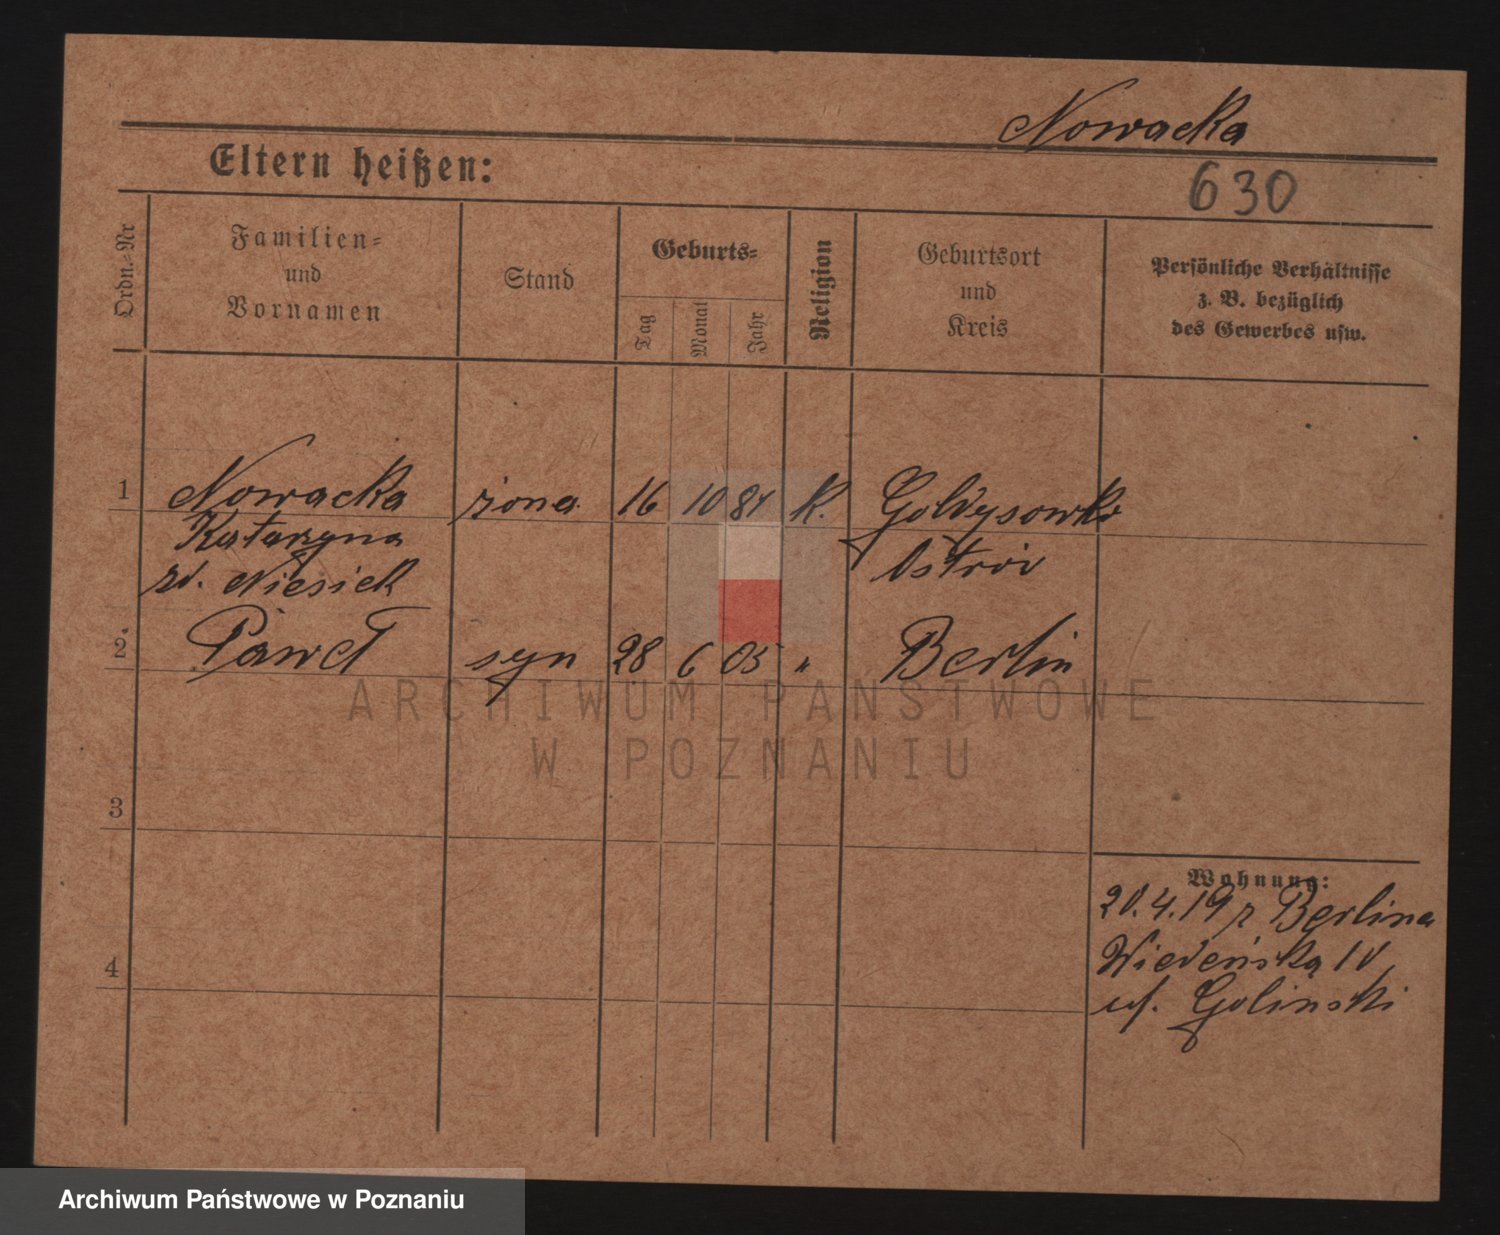 Nowacka
Eltern heißen:
630
Ordn.-Nr
Familien-
und
Vornamen
Stand
Geburts-
Tag
Monat
Jahr
Religion
Geburtsort
und
Kreis
Persönliche Verhältnisse
z. B. bezüglich
des Gewerbes usw.
1 Nowacka żona 16 10 81 K.
Katarzyna Ostrów
zd. Niesiek
2 Paweł syn 28 6 05 " Berlin
ARCHIWUM PAŃSTWOWE
W POZNANIU
3
Wohnung:
20.4.19 z Berlina
4 Wiedeńska 10
uf. Golinski
Archiwum Państwowe w Poznaniu